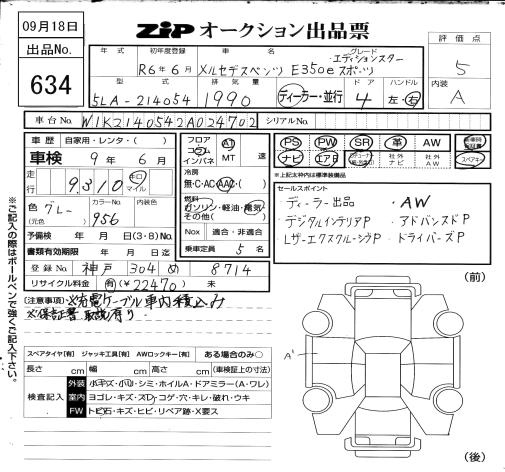 09月18日
出品No.
634
ZiP オークション出品票
評価点
5
内装
A
年式 初年度登録 車名 グレード
R6年6月 メルセデスベンツ E350e エディションスター スポーツ
型式 排気量 ドア ハンドル
5LA-214054 1990 ディーラー・並行 4 左・右
車台No. W1K2140542A024702 シリアルNo.
車歴 自家用・レンタ・( )
車検 9年 6月
走行 9,310 キロ マイル
色 グレー カラーNo. 956 内装色
(元色)
予備検 年 月 日(3・6)No.
書類有効期限 年 月 日迄
登録No. 神戸 304 め 8714
リサイクル料金 有(¥22470) 未
フロア コラム インパネ AT MT 速
冷房 無・C・AC・AAC
燃料 ガソリン・軽油・電気 その他( )
Nox 適合・非適合
乗車定員 5 名
PS PW SR 革 AW
ナビ エアB 社外ナビ 社外AW スペアキー
※上記太枠内は標準装備品
セールスポイント
・ディーラー出品 ・AW
・デジタルインテリアP ・アドバンスドP
・レザーエクスクルーシヴP ・ドライバーズP
[注意事項] ※充電ケーブル車内積込み
※保証書 取説有り
スペアタイヤ[有] ジャッキ工具[有] AWロックキー[有] ある場合のみ○
長さ cm 幅 cm 高さ cm (車検証上の寸法)
検査記入
外装 小キズ・小U・シミ・ホイルA・ドアミラー(A・ワレ)
室内 ヨゴレ・キズ・スレ・コゲ・穴・キレ・破れ・ウキ
FW トビ石・キズ・ヒビ・リペア跡・X要ス
(前)
A'
(後)
※ご記入の際はボールペンで強くご記入下さい。